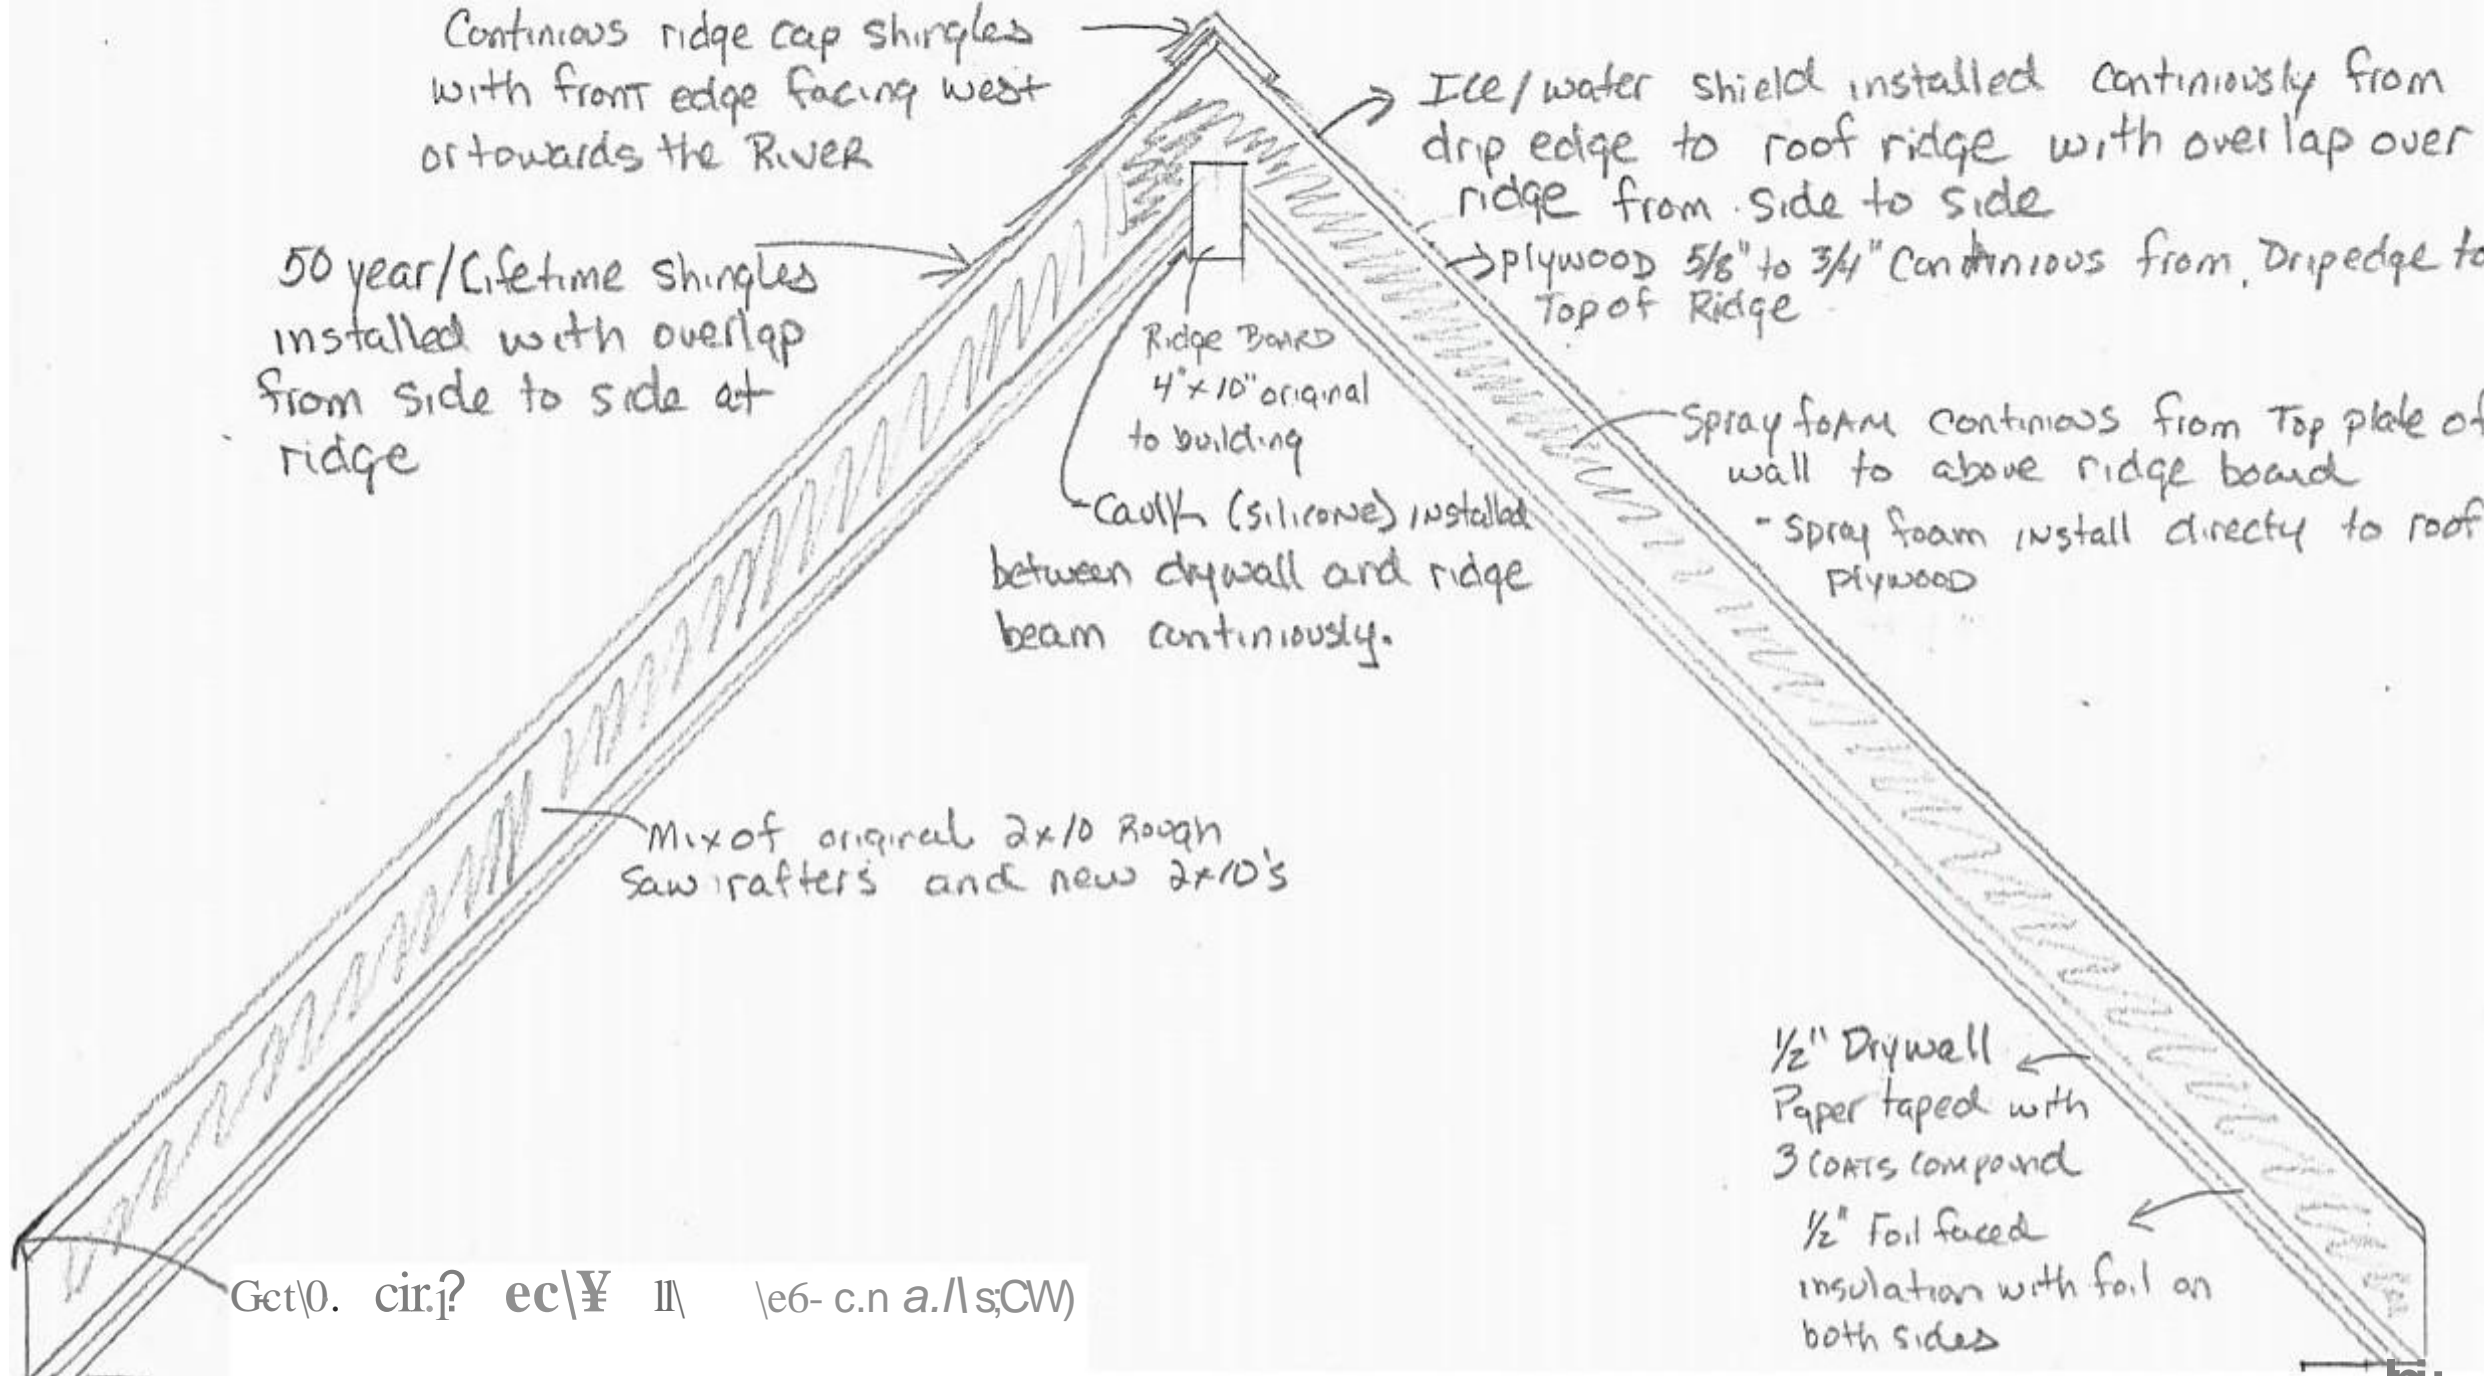 Continious ridge cap shingles
with front edge facing west
or towards the River
Ice/water shield installed continiously from
drip edge to roof ridge with overlap over
ridge from side to side
plywood 5/8" to 3/4" Continious from Dripedge to
Top of Ridge
50 year/Lifetime shingles
installed with overlap
from side to side at
ridge
Ridge Board
4"x10" original
to building
Spray foam continious from Top plate of
wall to above ridge board
- Spray foam install directy to roof
plywood
- Caulk (silicone) installed
between drywall and ridge
beam continiously.
Mix of original 2x10 Rough
Saw rafters and new 2x10's
1/2" Drywall
Paper taped with
3 coats compound
1/2" Foil faced
insulation with foil on
both sides